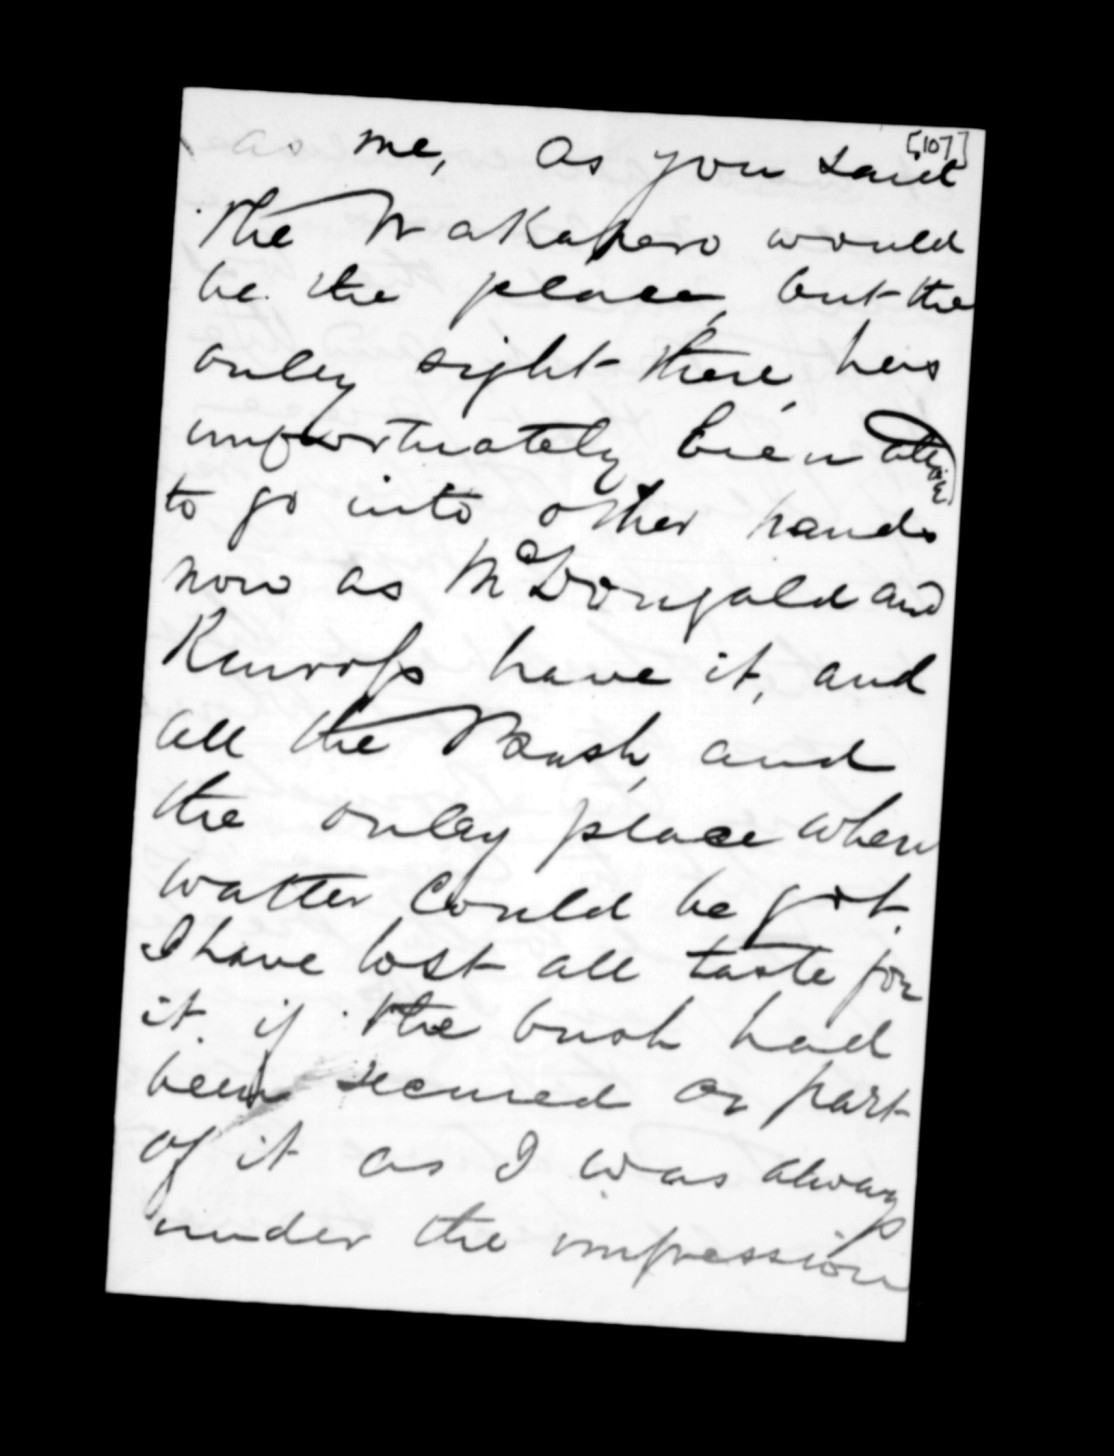 [107]
as me, as you said
the Wakapero would
be the place, but the
onley sight there, has
unfortunately been
to go into other hands
now as McDougald and
have it, and
all the Bush, and
the onley place where
watter could be got.
I have lost all taste for
it. if the bush had
been secured or part
of it as I was always
under the impression